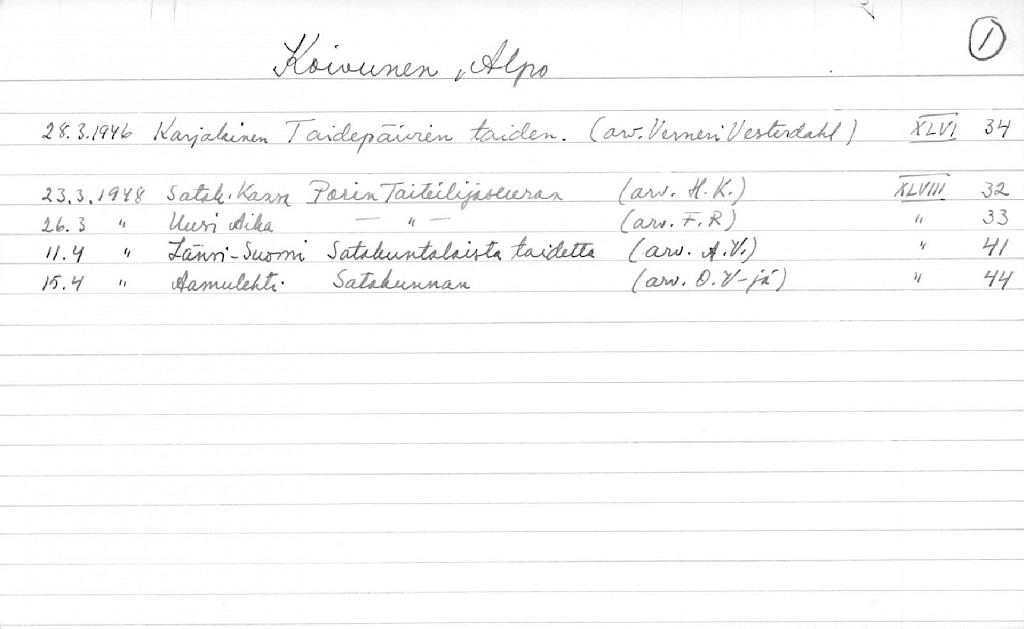 ①
Koivunen, Alpo
28.3.1946 Karjalainen Taidepäivien taiden. (arv. Verneri Vesterdahl) XLVI 34
23.3.1948 Satak. Kansa Porin Taiteilijaseuran (arv. H.K.) XLVIII 32
26.3 " Uusi Aika — " — (arv. F.R) " 33
11.4 " Länsi-Suomi Satakuntalaista taidetta (arv. A.V.) " 41
15.4 " Aamulehti. Satakunnan (arv. O.V-jä) " 44